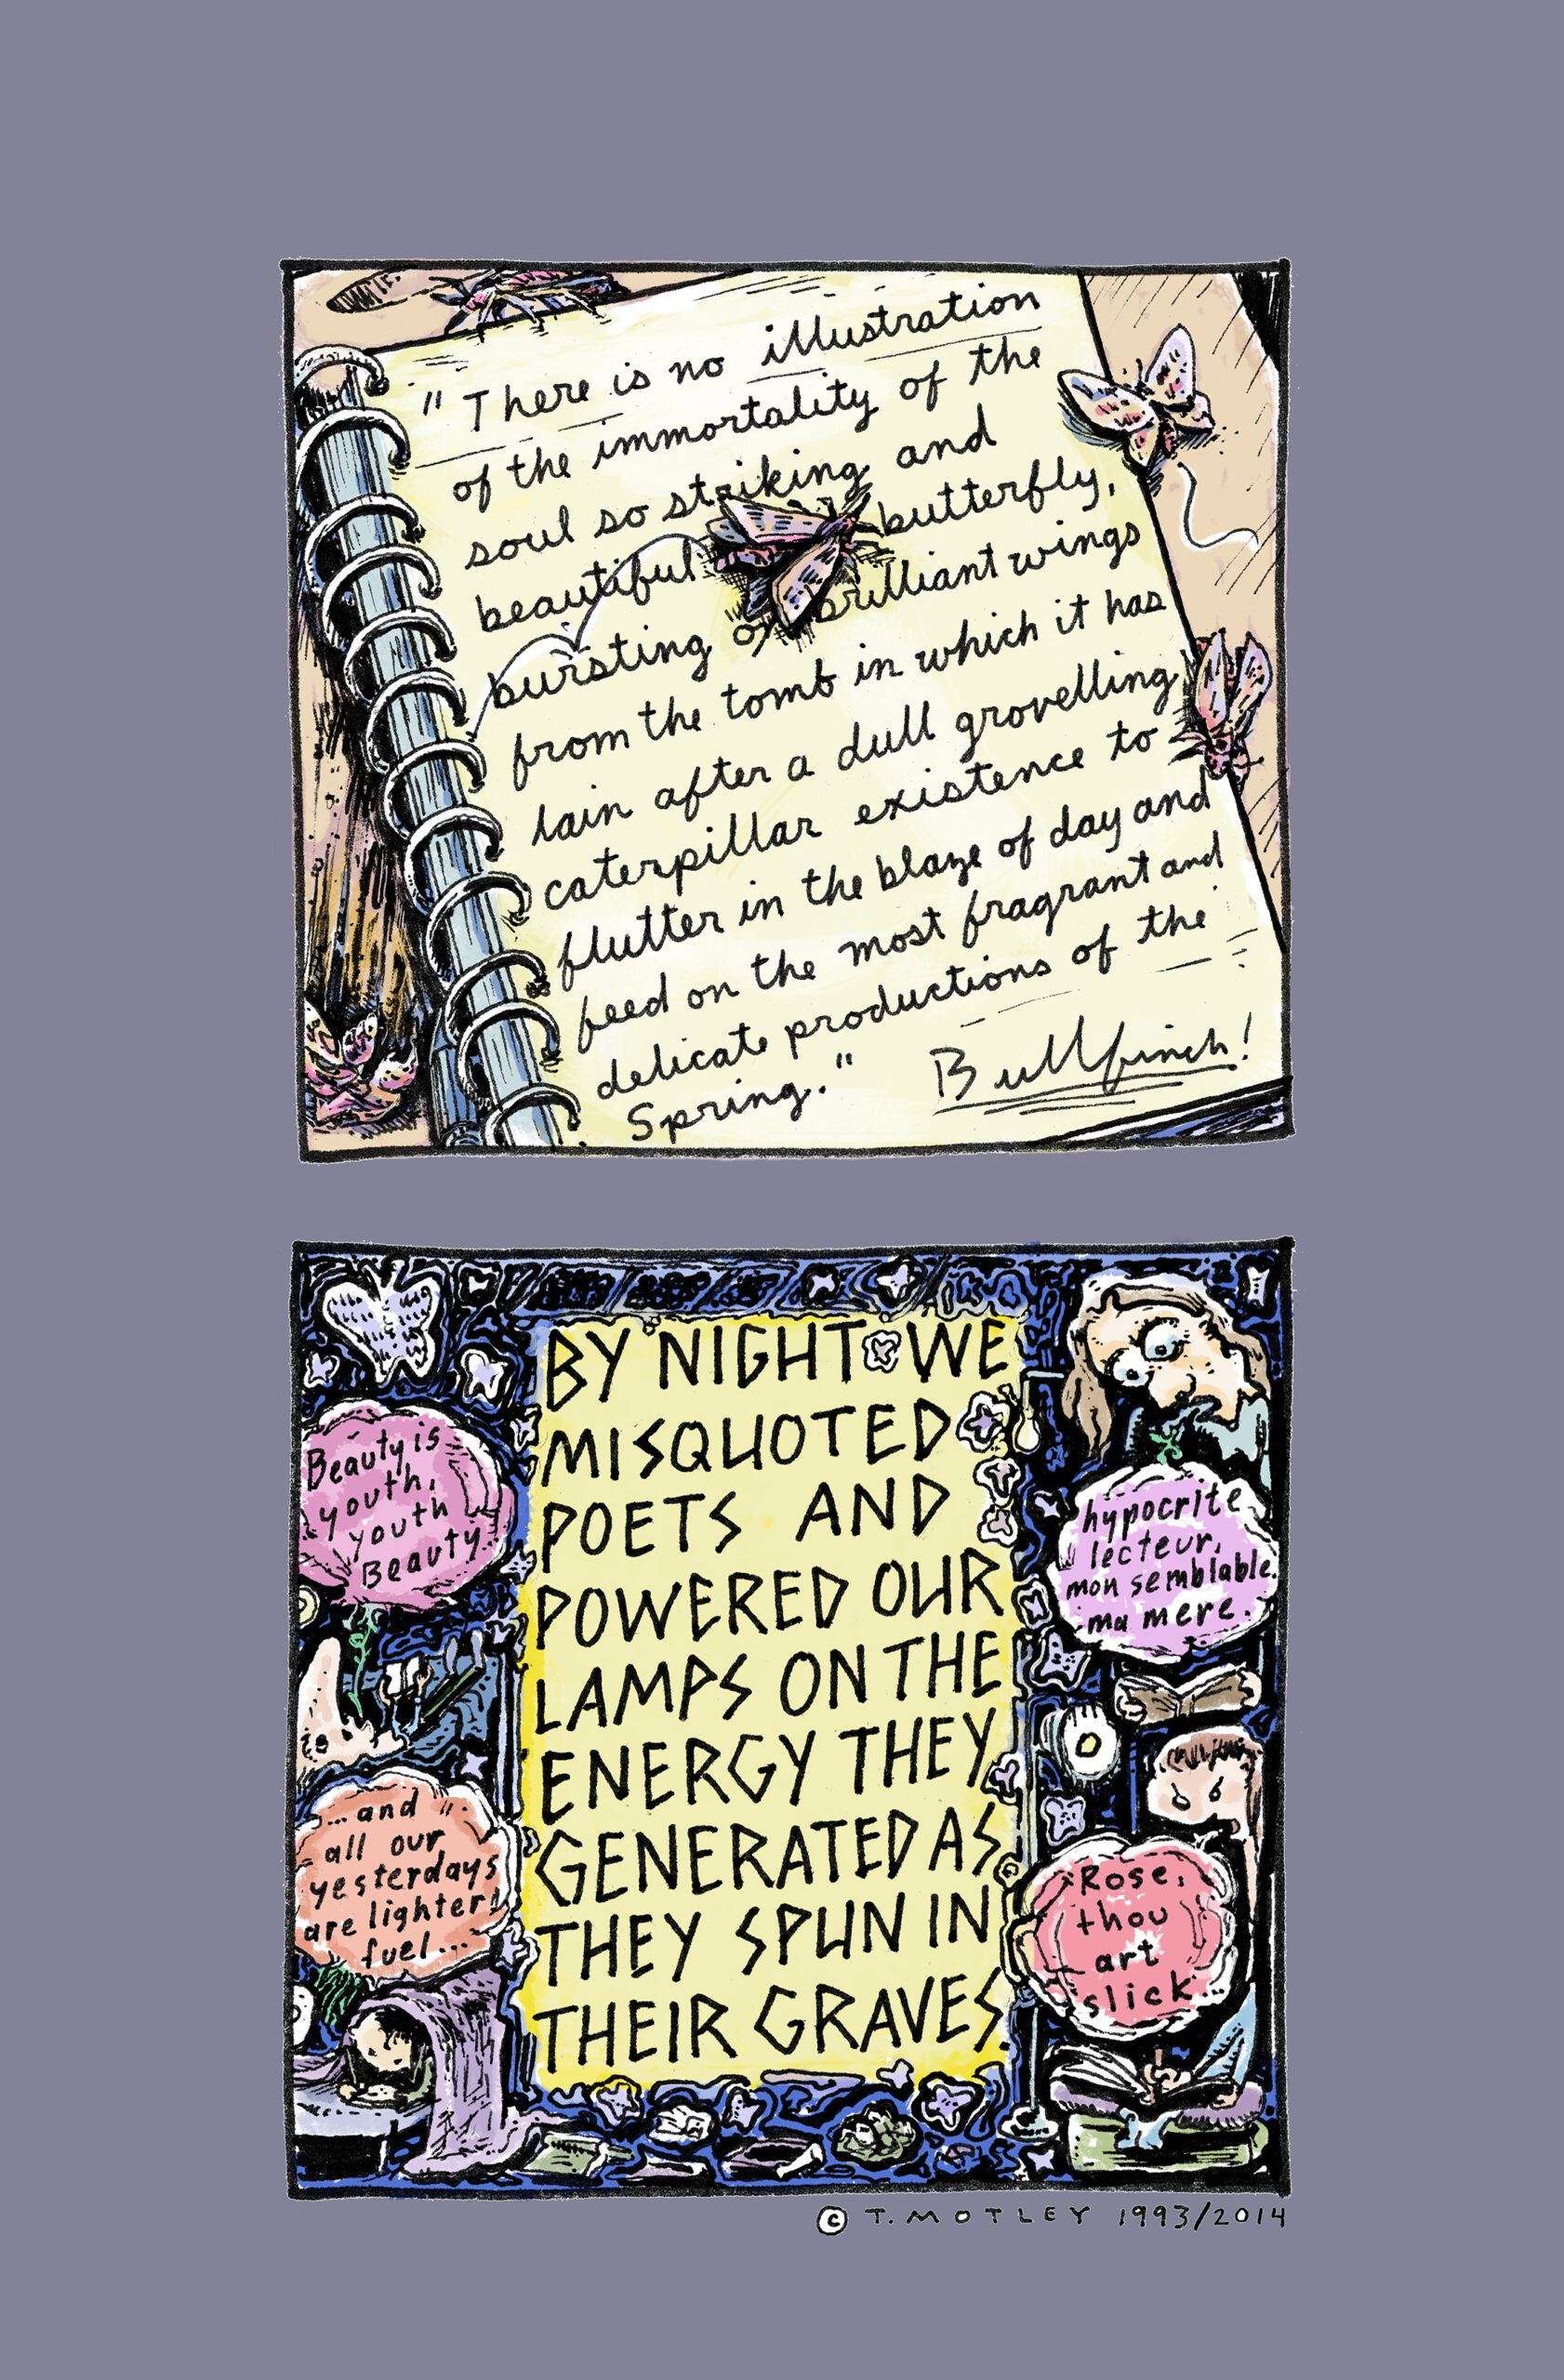 "There is no illustration
of the immortality of the
soul so striking and
beautiful butterfly,
bursting on brilliant wings
from the tomb in which it has
lain after a dull grovelling
caterpillar existence to
flutter in the blaze of day and
feed on the most fragrant and
delicate productions of the
Spring." Bullfinch!
BY NIGHT WE
MISQUOTED
POETS AND
POWERED OUR
LAMPS ON THE
ENERGY THEY
GENERATED AS
THEY SPUN IN
THEIR GRAVES.
Beauty is
youth,
youth
Beauty
...and
all our
yesterdays
are lighter
fuel...
hypocrite
lecteur,
mon semblable,
ma mere.
Rose,
thou
art
slick.
© T. MOTLEY 1993/2014